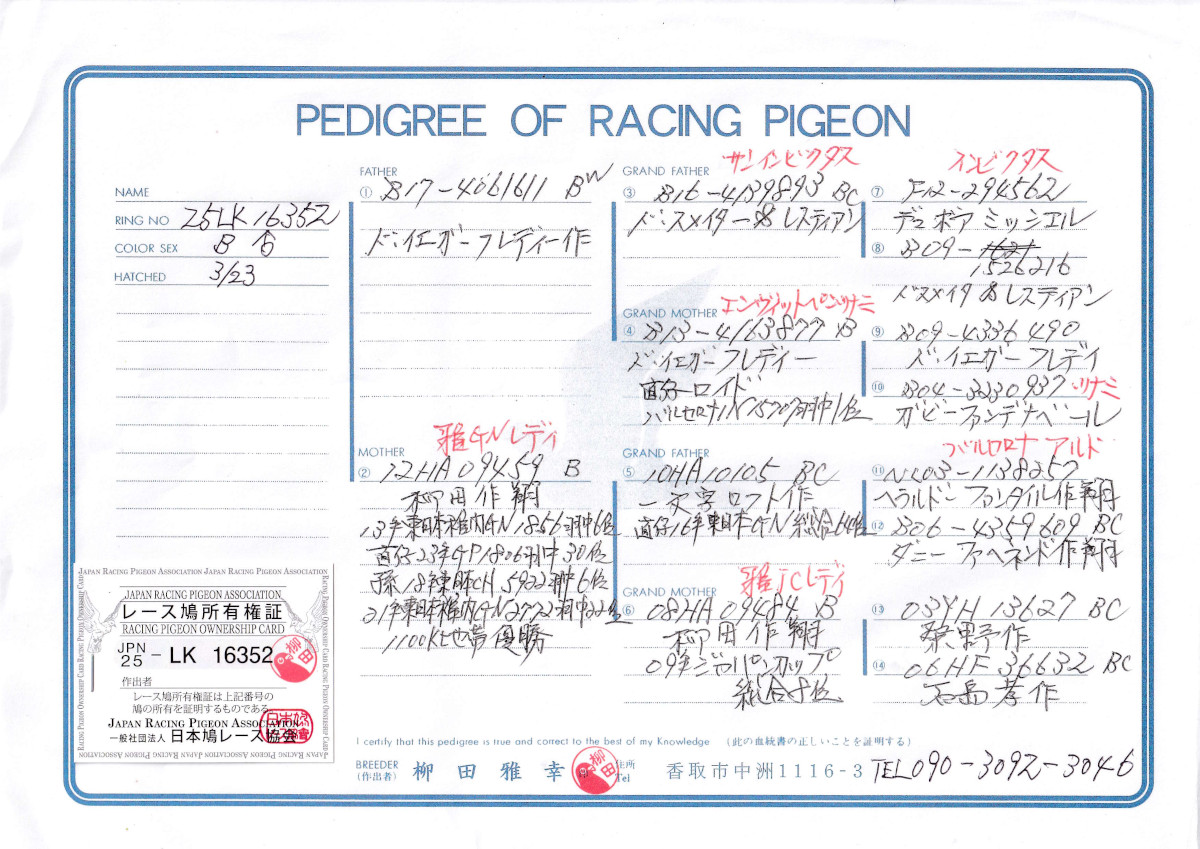 PEDIGREE OF RACING PIGEON
NAME
RING NO 25LK16352
COLOR SEX B ♂
HATCHED 3/23
FATHER
① B17-4061611 BW
ド・イエガーフレディー作
雅GNレディ
MOTHER
② 12HA09459 B
柳田作翔
13年東日本稚内GN1856羽中6位
直仔23年GP1806羽中30位
孫18年東日本CH 5922羽中6位
21年東日本稚内GN2722羽中22位
1100K地帯優勝
サンインビクタス
GRAND FATHER
③ B16-4139893 BC
ド・スメイター&レスティアン
エンヴィットペンツナミ
GRAND MOTHER
④ B13-4163877 B
ド・イエガーフレディー
直仔ロイド
バルセロナIN15707羽中1位
GRAND FATHER
⑤ 10HA10105 BC
一文字ロフト作
直仔16年東日本GN総合
雅JCレディ
GRAND MOTHER
⑥ 08HA09484 B
柳田作翔
09年ジャパンカップ
総合8位
インビクタス
⑦ F12-294562
デュボア ミッシェル
⑧ B09-
1526216
ド・スメイタ&レスティアン
⑨ B09-4336490
ド・イエガーフレディ
⑩ B04-3230937 ツナミ
ガビーファンデナベール
バルセロナ アルド
⑪ NL03-1138257
ヘラルドーファンタイル作翔
⑫ B06-4359609 BC
ダニーファヘネンド作翔
⑬ 03YH13627 BC
桑野作
⑭ 06HF36632 BC
石島孝作
JAPAN RACING PIGEON ASSOCIATION
レース鳩所有権証
RACING PIGEON OWNERSHIP CARD
JPN
25 - LK 16352
柳田
作出者
レース鳩所有権証は上記番号の
鳩の所有を証明するものである。
JAPAN RACING PIGEON ASSOCIATION
一般社団法人 日本鳩レース協会
I certify that this pedigree is true and correct to the best of my Knowledge (此の血統書の正しいことを証明する)
BREEDER
(作出者) 柳田雅幸 柳田 住所
Tel 香取市中洲1116-3 TEL090-3092-3046